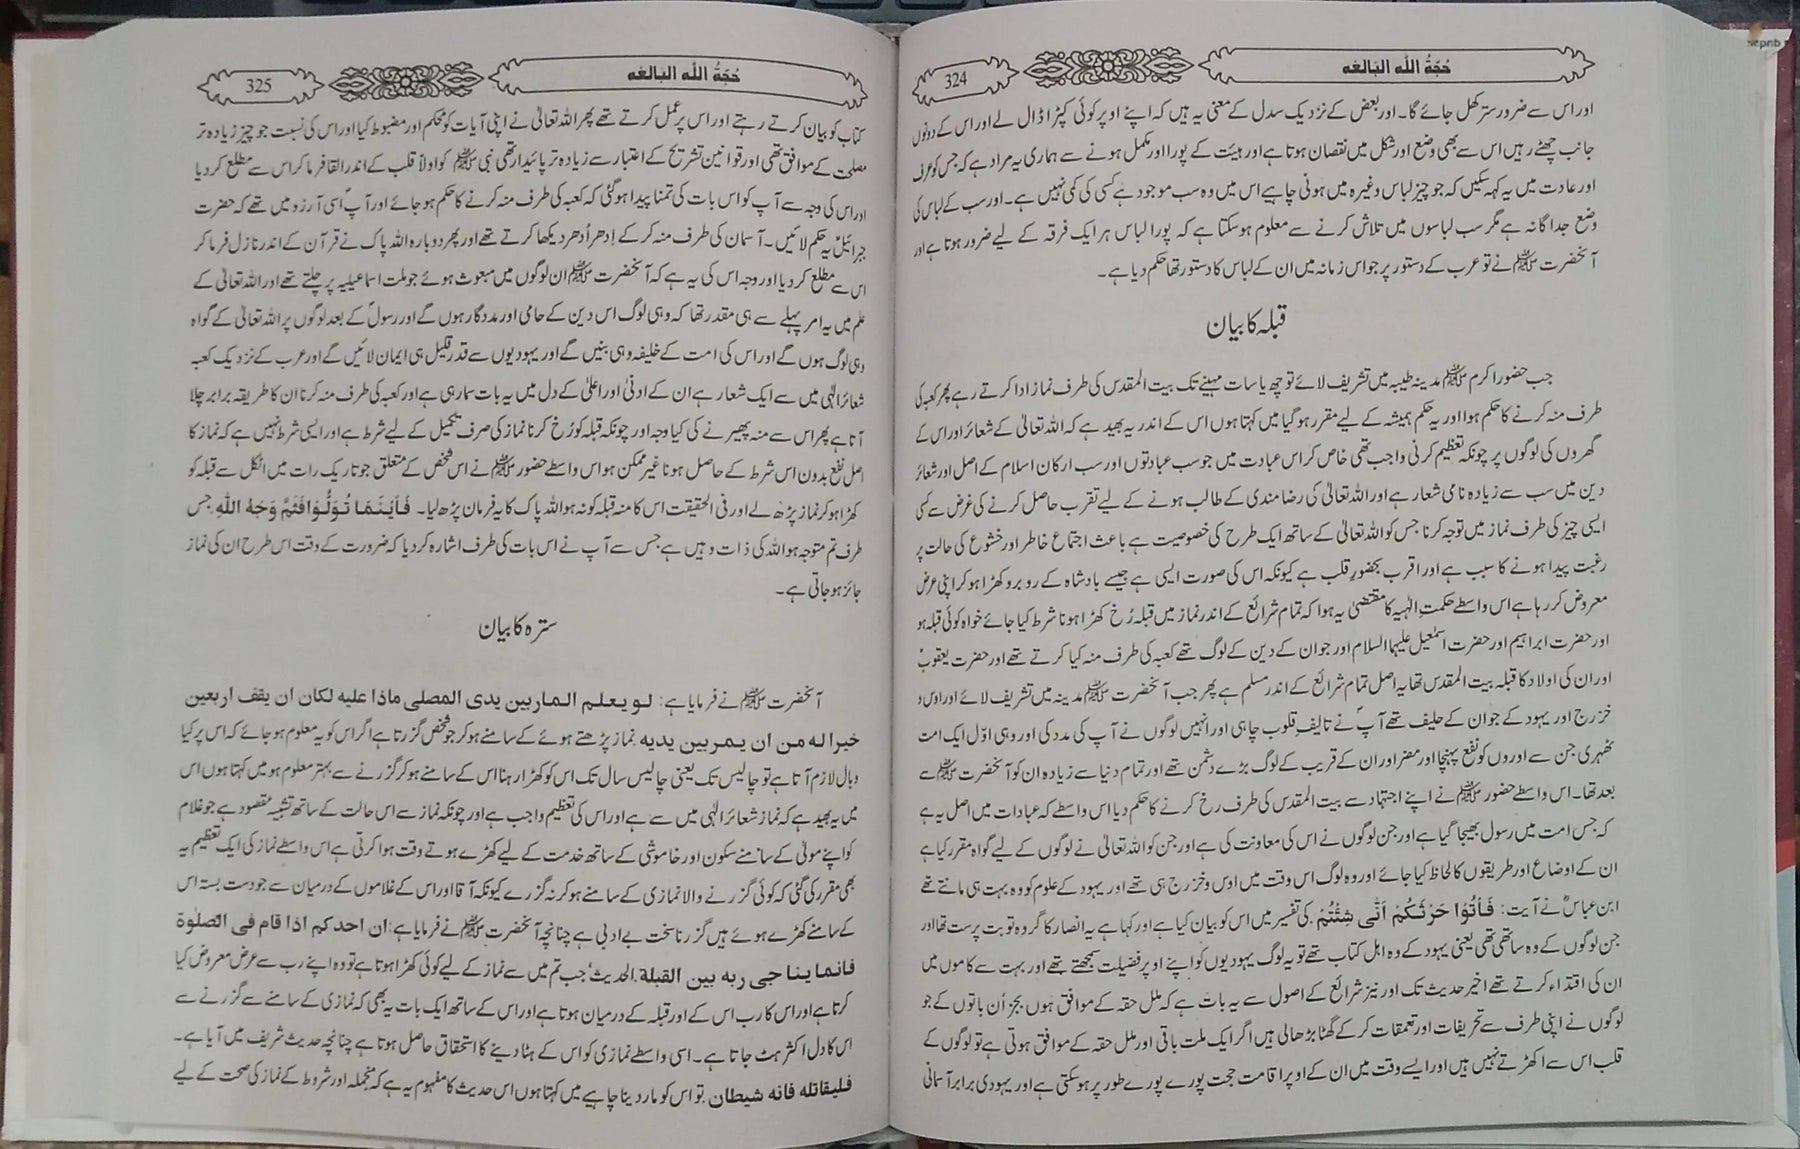 حُجَّةُ اللّٰه البَالغه
324
اور اس سے ضرور ستر کھل جائے گا۔ اور بعض کے نزدیک سدل کے معنی یہ ہیں کہ اپنے اوپر کوئی کپڑا ڈال لے اور اس کے دونوں
جانب چھٹے رہیں اس سے بھی وضع اور شکل میں نقصان ہوتا ہے اور ہیئت کے پورا اور مکمل ہونے سے ہماری یہ مراد ہے کہ جس کو عرف
اور عادت میں یہ کہہ سکیں کہ جو چیز لباس وغیرہ میں ہونی چاہیے اس میں وہ سب موجود ہے کسی کی کمی نہیں ہے۔ اور سب کے لباس کی
وضع جداگانہ ہے مگر سب لباسوں میں تلاش کرنے سے معلوم ہوسکتا ہے کہ پورا لباس ہر ایک فرقہ کے لیے ضرور ہوتا ہے اور
آنحضرت ﷺ نے تو عرب کے دستور پر جو اس زمانہ میں ان کے لباس کا دستور تھا حکم دیا ہے۔
قبلہ کا بیان
جب حضور اکرم ﷺ مدینہ طیبہ میں تشریف لائے تو چھ یا سات مہینے تک بیت المقدس کی طرف نماز ادا کرتے رہے پھر کعبہ کی
طرف منہ کرنے کا حکم ہوا اور یہ حکم ہمیشہ کے لیے مقرر ہوگیا میں کہتا ہوں اس کے اندر یہ بھید ہے کہ اللہ تعالیٰ کے شعائر اور اس کے
گھروں کی لوگوں پر چونکہ تعظیم کرنی واجب تھی خاص کر اس عبادت میں جو سب عبادتوں اور سب ارکان اسلام کے اصل اور شعائر
دین میں سب سے زیادہ نامی شعار ہے اور اللہ تعالیٰ کی رضامندی کے طالب ہونے کے لیے تقرب حاصل کرنے کی غرض سے کسی
ایسی چیز کی طرف نماز میں توجہ کرنا جس کو اللہ تعالیٰ کے ساتھ ایک طرح کی خصوصیت ہے باعث اجتماع خاطر اور خشوع کی حالت پر
رغبت پیدا ہونے کا سبب ہے اور اقرب بحضورِ قلب ہے کیونکہ اس کی صورت ایسی ہے جیسے بادشاہ کے روبرو کھڑا ہوکر اپنی عرض
معروض کر رہا ہے اس واسطے حکمتِ الٰہیہ کا مقتضیٰ یہ ہوا کہ تمام شرائع کے اندر نماز میں قبلہ رُخ کھڑا ہونا شرط کیا جائے خواہ کوئی قبلہ ہو
اور حضرت ابراہیم اور حضرت اسمٰعیل علیہما السلام اور جو ان کے دین کے لوگ تھے کعبہ کی طرف منہ کیا کرتے تھے اور حضرت یعقوبؑ
اور ان کی اولاد کا قبلہ بیت المقدس تھا یہ اصل تمام شرائع کے اندر مسلم ہے پھر جب آنحضرت ﷺ مدینہ میں تشریف لائے اور اوس و
خزرج اور یہود کے جو ان کے حلیف تھے آپؐ نے تالیفِ قلوب چاہی اور انہیں لوگوں نے آپ کی مدد کی اور وہی اوّل ایک امت
ٹھہری جن سے اوروں کو نفع پہنچا اور مضر اور ان کے قریب کے لوگ بڑے دشمن تھے اور تمام دنیا سے زیادہ ان کو آنحضرت ﷺ سے
بعد تھا۔ اس واسطے حضور ﷺ نے اپنے اجتہاد سے بیت المقدس کی طرف رخ کرنے کا حکم دیا اس واسطے کہ عبادات میں اصل یہ ہے
کہ جس امت میں رسول بھیجا گیا ہے اور جن لوگوں نے اس کی معاونت کی ہے اور جن کو اللہ تعالیٰ نے لوگوں کے لیے گواہ مقرر کیا ہے
ان کے اوضاع اور طریقوں کا لحاظ کیا جائے اور وہ لوگ اس وقت میں اوس و خزرج ہی تھے اور یہود کے علوم کو وہ بہت ہی مانتے تھے
ابن عباسؓ نے آیت: فَأْتُوْا حَرْثَكُمْ اَنّٰى شِئْتُمْ. کی تفسیر میں اس کو بیان کیا ہے اور کہا ہے یہ انصار کا گروہ تو بت پرست تھا اور
جن لوگوں کے وہ ساتھی تھے یعنی یہود کے وہ اہل کتاب تھے تو یہ لوگ یہودیوں کو اپنے اوپر فضیلت سمجھتے تھے اور بہت سے کاموں میں
ان کی اقتداء کرتے تھے اخیر حدیث تک اور نیز شرائع کے اصول سے یہ بات ہے کہ ملل حقہ کے موافق ہوں بجز اُن باتوں کے جو
لوگوں نے اپنی طرف سے تحریفات اور تعمقات کر کے گھٹا بڑھا لی ہیں اگر ایک ملت باقی اور ملل حقہ کے موافق ہوتی ہے تو لوگوں کے
قلب اس سے اکھڑتے نہیں ہیں اور ایسے وقت میں ان کے اوپر اقامت حجت پورے پورے طور پر ہوسکتی ہے اور یہودی برابر آسمانی
حُجَّةُ اللّٰه البَالغه
325
کتاب کو بیان کرتے رہتے اور اس پر عمل کرتے تھے پھر اللہ تعالیٰ نے اپنی آیات کو محکم اور مضبوط کیا اور اس کی نسبت جو چیز زیادہ تر
مصلحت کے موافق تھی اور قوانین تشریح کے اعتبار سے زیادہ تر پائیدار تھی نبی ﷺ کو اولاً قلب کے اندر القا فرما کر اس سے مطلع کر دیا
اور اس کی وجہ سے آپ کو اس بات کی تمنا پیدا ہوگئی کہ کعبہ کی طرف منہ کرنے کا حکم ہوجائے اور آپ اسی آرزو میں تھے کہ حضرت
جبرائیلؑ یہ حکم لائیں۔ آسمان کی طرف منہ کر کے اِدھر اُدھر دیکھا کرتے تھے اور پھر دوبارہ اللہ پاک نے قرآن کے اندر نازل فرما کر
اس سے مطلع کر دیا اور وجہ اس کی یہ ہے کہ آنحضرت ﷺ ان لوگوں میں مبعوث ہوئے جو ملت اسماعیلیہ پر چلتے تھے اور اللہ تعالیٰ کے
علم میں یہ امر پہلے سے ہی مقدر تھا کہ وہی لوگ اس دین کے حامی اور مددگار ہوں گے اور رسولؐ کے بعد لوگوں پر اللہ تعالیٰ کے گواہ
وہی لوگ ہوں گے اور اس کی امت کے خلیفہ وہی بنیں گے اور یہودیوں سے قدر قلیل ہی ایمان لائیں گے اور عرب کے نزدیک کعبہ
شعائر الٰہی میں سے ایک شعار ہے ان کے ادنیٰ اور اعلیٰ کے دل میں یہ بات سما رہی ہے اور کعبہ کی طرف منہ کرنا ان کا طریقہ برابر چلا
آتا ہے پھر اس سے منہ پھیرنے کی کیا وجہ اور چونکہ قبلہ کو رُخ کرنا نماز کی صرف تکمیل کے لیے شرط ہے اور ایسی شرط نہیں ہے کہ نماز کا
اصل نفع بدون اس شرط کے حاصل ہونا غیر ممکن ہو اس واسطے حضور ﷺ نے اس شخص کے متعلق جو تاریک رات میں اٹکل سے قبلہ کو
کھڑا ہوکر نماز پڑھ لے اور فی الحقیقت اس کا منہ قبلہ کو نہ ہو اللہ پاک کا یہ فرمان پڑھ لیا۔ فَاَيْنَمَا تُوَلُّوْا فَثَمَّ وَجْهُ اللّٰهِ جس
طرف تم متوجہ ہو اللہ کی ذات وہیں ہے جس سے آپ نے اس بات کی طرف اشارہ کر دیا کہ ضرورت کے وقت اس طرح ان کی نماز
جائز ہوجاتی ہے۔
سترہ کا بیان
آنحضرت ﷺ نے فرمایا ہے: لو يعلم المار بين يدى المصلى ماذا عليه لكان ان يقف اربعين
خيرا له من ان يمر بين يديه. نماز پڑھتے ہوئے کے سامنے ہوکر جو شخص گزرتا ہے اگر اس کو یہ معلوم ہوجائے کہ اس پر کیا
وبال لازم آتا ہے تو چالیس تک یعنی چالیس سال تک اس کو کھڑا رہنا اس کے سامنے ہوکر گزرنے سے بہتر معلوم ہو میں کہتا ہوں اس
میں یہ بھید ہے کہ نماز شعائر الٰہی میں سے ہے اور اس کی تعظیم واجب ہے اور چونکہ نماز سے اس حالت کے ساتھ تشبیہ مقصود ہے جو غلام
کو اپنے مولیٰ کے سامنے سکون اور خاموشی کے ساتھ خدمت کے لیے کھڑے ہوتے وقت ہوا کرتی ہے اس واسطے نماز کی ایک تعظیم یہ
بھی مقرر کی گئی کہ کوئی گزرنے والا نمازی کے سامنے ہوکر نہ گزرے کیونکہ آقا اور اس کے غلاموں کے درمیان سے جو دست بستہ اس
کے سامنے کھڑے ہوئے ہیں گزرنا سخت بے ادبی ہے چنانچہ آنحضرت ﷺ نے فرمایا ہے: ان احدكم اذا قام فى الصلوٰة
فانما يناجى ربه بين القبلة. الحدیث‘ جب تم میں سے نماز کے لیے کوئی کھڑا ہوتا ہے تو وہ اپنے رب سے عرض معروض کیا
کرتا ہے اور اس کا رب اس کے اور قبلہ کے درمیان ہوتا ہے اور اس کے ساتھ ایک بات یہ بھی کہ نمازی کے سامنے سے گزرنے سے
اس کا دل اکثر ہٹ جاتا ہے۔ اسی واسطے نمازی کو اس کے ہٹا دینے کا استحقاق حاصل ہوتا ہے چنانچہ حدیث شریف میں آیا ہے۔
فليقاتله فانه شيطان. تو اس کو مار دینا چاہیے میں کہتا ہوں اس حدیث کا مفہوم یہ ہے کہ منجملہ اور شروط کے نماز کی صحت کے لیے